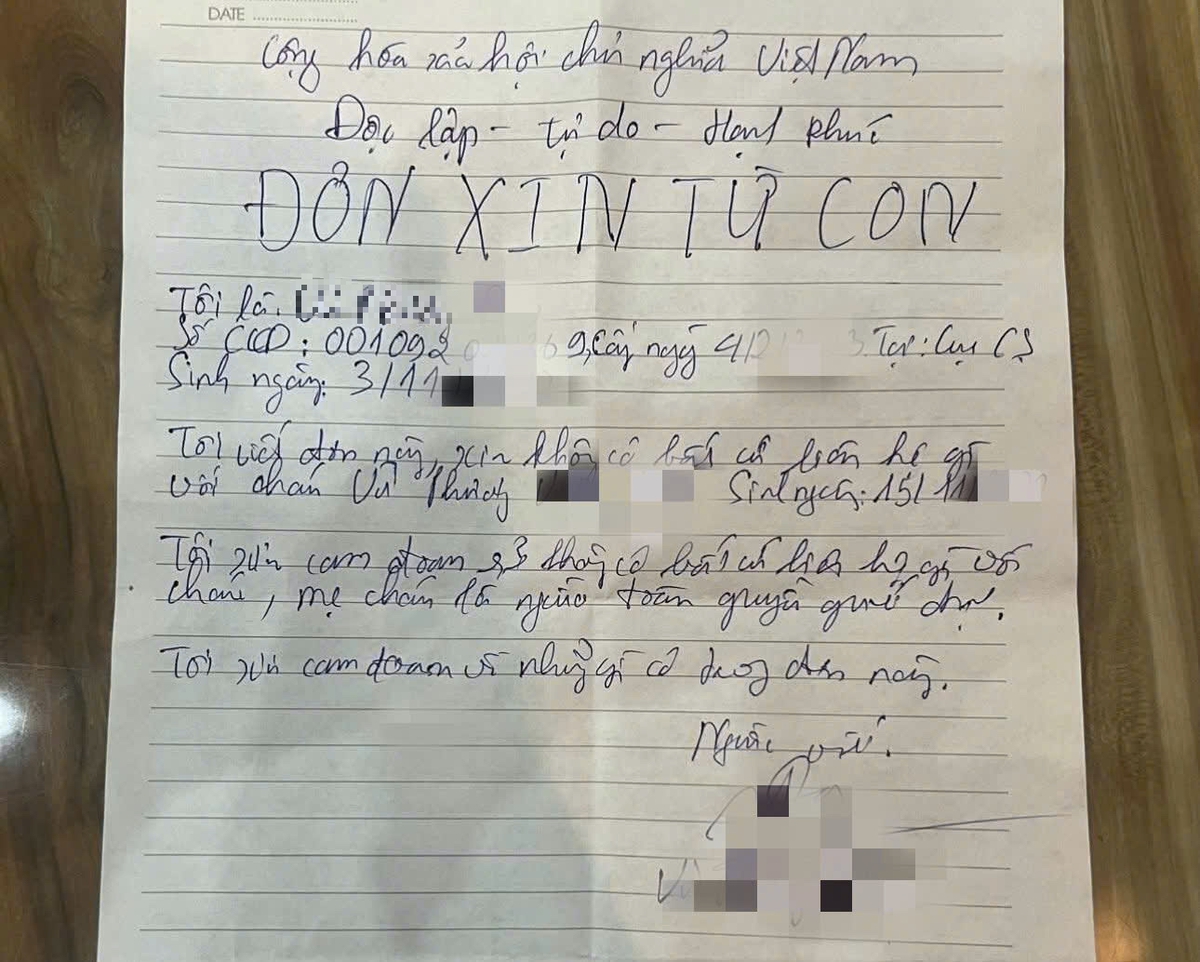 DATE
Cộng hòa xã hội chủ nghĩa Việt Nam
Độc lập - tự do - Hạnh phúc
ĐƠN XIN TỪ CON
Tôi là:
Số CCCD: 001092 9, Cấp ngày 4/2 3. Tại: Cục CS
Sinh ngày: 3/11
Tôi viết đơn này, xin không có bất cứ liên hệ gì
với cháu Vũ Sinh ngày: 15/11
Tôi xin cam đoan sẽ không có bất cứ liên hệ gì với
cháu, mẹ cháu là người toàn quyền quyết định.
Tôi xin cam đoan về những gì có trong đơn này.
Người viết.
Vũ